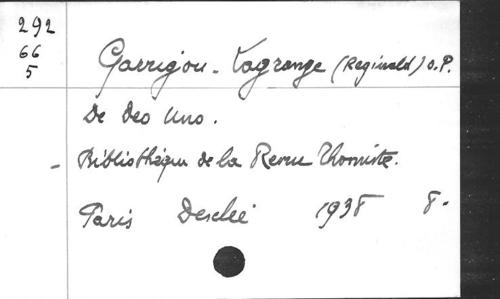 292
66
5
Garrigou-Lagrange (Reginald) O.P.
De Deo Uno.
- Bibliothèque de la Revue Thomiste.
Paris Desclée 1938 8-